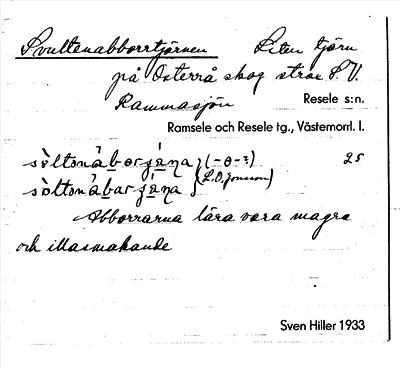 Svultenabborrtjärnen Liten tjärn
på Österrå skog strax S.V.
Rammasjön Resele s:n.
Ramsele och Resele tg., Västernorrl. l.
(-o-?) 25
(L.O. Jonsson)
Abborrarna lära vara magra
och illasmakande
Sven Hiller 1933